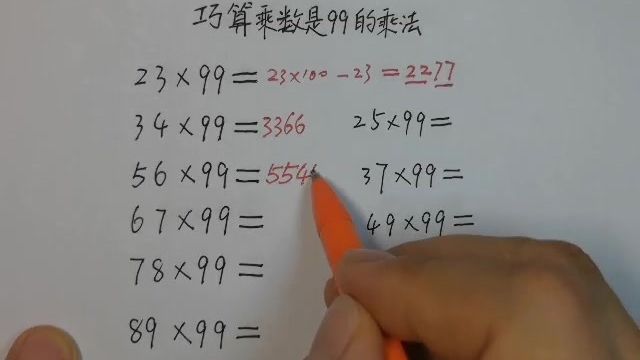 巧算乘数是99的乘法
23×99=23×100-23=2277
34×99=3366
25×99=
56×99=554
37×99=
67×99=
49×99=
78×99=
89×99=